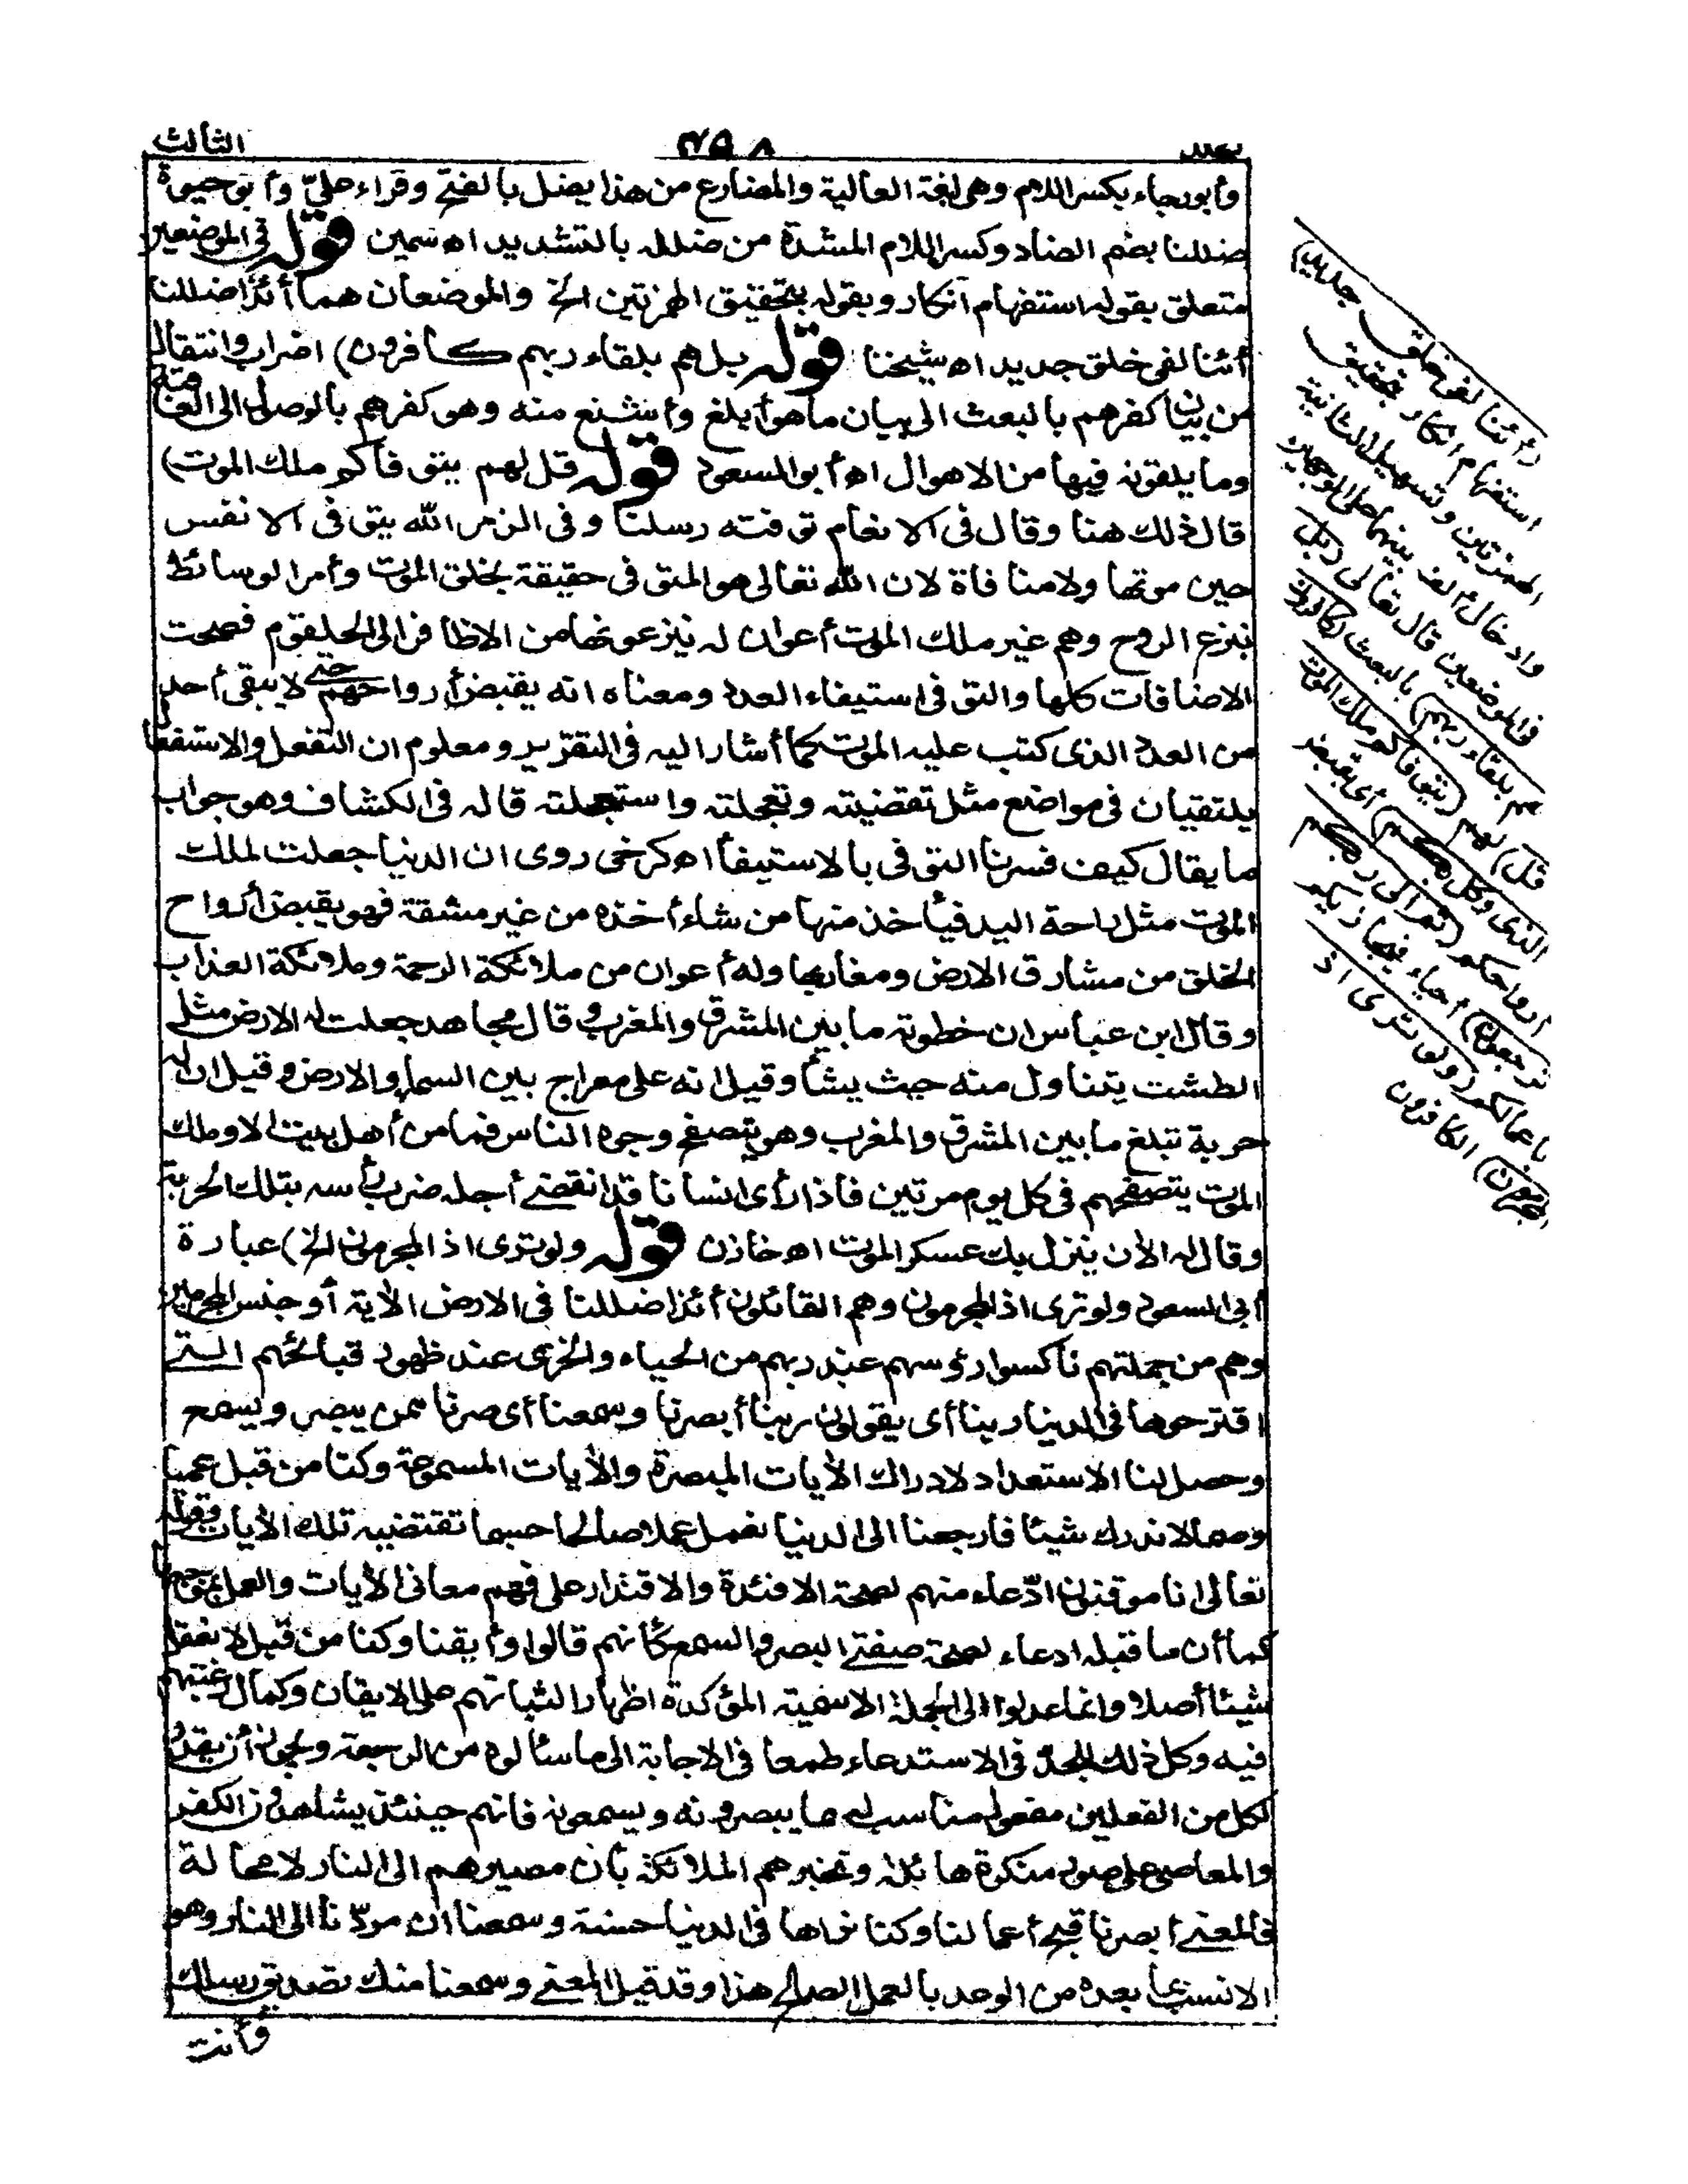 الثالث
٢٥٨
وأبو رجاء بكسر اللام وهى لغة العالية والمضارع من هذا يضل بالفتح وقراء على وأبو حيوة
ضللنا بضم الضاد وكسر اللام المشددة من ضلله بالتشديد اه سمين قوله فى الموضعين
متعلق بقوله استفهام انكار وبقوله بتحقيق الهمزتين الخ والموضعان هما أئذا ضللنا
أئنا لفى خلق جديد اه شيخنا قوله بل هم بلقاء ربهم كافرون) اضراب وانتقال
من بيان كفرهم بالبعث الى بيان ما هو أبلغ وأشنع منه وهو كفرهم بالوصول الى العاقبة
وما يلقونه فيها من الاهوال اه أبو السعود قوله قل لهم يتوفاكم ملك الموت)
قال ذلك هنا وقال فى الانعام توفته رسلنا وفى الزمر الله يتوفى الانفس
حين موتها ولا منافاة لان الله تعالى هو المتوفى حقيقة بخلق الموت وأمر الوسائط
بنزع الروح وهم غير ملك الموت أعوان له ينزعونها من الاظافر الى الحلقوم فصحت
الاضافات كلها والتوفى استيفاء العدد ومعناه انه يقبض أرواحهم حتى لا يبقى أحد
من العدد الذى كتب عليه الموت كما أشار اليه فى التقرير ومعلوم ان التفعل والاستفعال
يلتقيان فى مواضع مثل تقضيته وتعجلته واستعجلته قاله فى الكشاف وهو جواب
ما يقال كيف فسرنا التوفى بالاستيفا اه كرخى روى ان الدنيا جعلت لملك
الموت مثل راحة اليد فيأخذ منها من شاء أخذه من غير مشقة فهو يقبض أرواح
الخلق من مشارق الارض ومغاربها وله أعوان من ملائكة الرحمة وملائكة العذاب
وقال ابن عباس ان خطوته ما بين المشرق والمغرب وقال مجاهد جعلت له الارض مثل
الطشت يتناول منه حيث يشأ وقيل انه على معراج بين السماء والارض وقيل ان له
حربة تبلغ ما بين المشرق والمغرب وهو يتصفح وجوه الناس فما من أهل بيت الا وملك
الموت يتصفحهم فى كل يوم مرتين فاذا رأى انسانا قد انقضى أجله ضرب رأسه بتلك الحربة
وقال له الأن ينزل بك عسكر الموت اه خازن قوله ولو ترى اذ المجرمون الخ) عبارة
أبى السعود ولو ترى اذ المجرمون وهم القائلون أئذا ضللنا فى الارض الأية أو جنس المجرمين
وهم من جملتهم ناكسوا رؤسهم عند ربهم من الحياء والخزى عند ظهور قبائحهم التى
اقترحوها فى الدنيا ربنا أى يقولون ربنا أبصرنا وسمعنا أى صرنا ممن يبصر ويسمع
وحصل لنا الاستعداد لادراك الأيات المبصرة والأيات المسموعة وكنا من قبل عميا
وصما لا ندرك شيئا فارجعنا الى الدنيا نعمل عملا صالحا حسبما تقتضيه تلك الأيات وقوله
تعالى انا موقنون ادّعاء منهم لصحة الافئدة والاقتدار على فهم معانى الأيات والعمل بموجبها
كما أن ما قبله ادعاء لصحة صفتى البصر والسمع كأنهم قالوا وأيقنا وكنا من قبل لا نعقل
شيئا أصلا وانما عدلوا الى الجملة الاسمية المؤكدة اظهارا لثباتهم على الايقان وكمال رغبتهم
فيه وكل ذلك للجد فى الاستدعاء طمعا فى الاجابة الى ما سألوه من الرجعة ويجوز أن يقدر
لكل من الفعلين مفعول مناسب له مما يبصرونه ويسمعونه فانهم حينئذ يشاهدون الكفر
والمعاصى على صور منكرة هائلة وتخبرهم الملائكة بأن مصيرهم الى النار لا محالة
فالمعنى أبصرنا قبح أعمالنا وكنا نراها فى الدنيا حسنة وسمعنا أن مردّنا الى النار وهو
الانسب بما بعده من الوعد بالعمل الصالح هذا وقد قيل المعنى وسمعنا منك تصديق رسلك
وأنت
(أئنا لفى خلق جديد)
استفهام انكار بتحقيق
الهمزتين وتسهيل الثانية
وادخال ألف بينهما على الوجهين
فى الموضعين قال تعالى (بل
هم بلقاء ربهم) بالبعث (كافرون
قل) لهم (يتوفاكم ملك الموت
الذى وكل بكم) أى بقبض
أرواحكم (ثم الى ربكم
ترجعون) أحياء فيجازيكم
باعمالكم (ولو ترى اذ
المجرمون) الكافرون